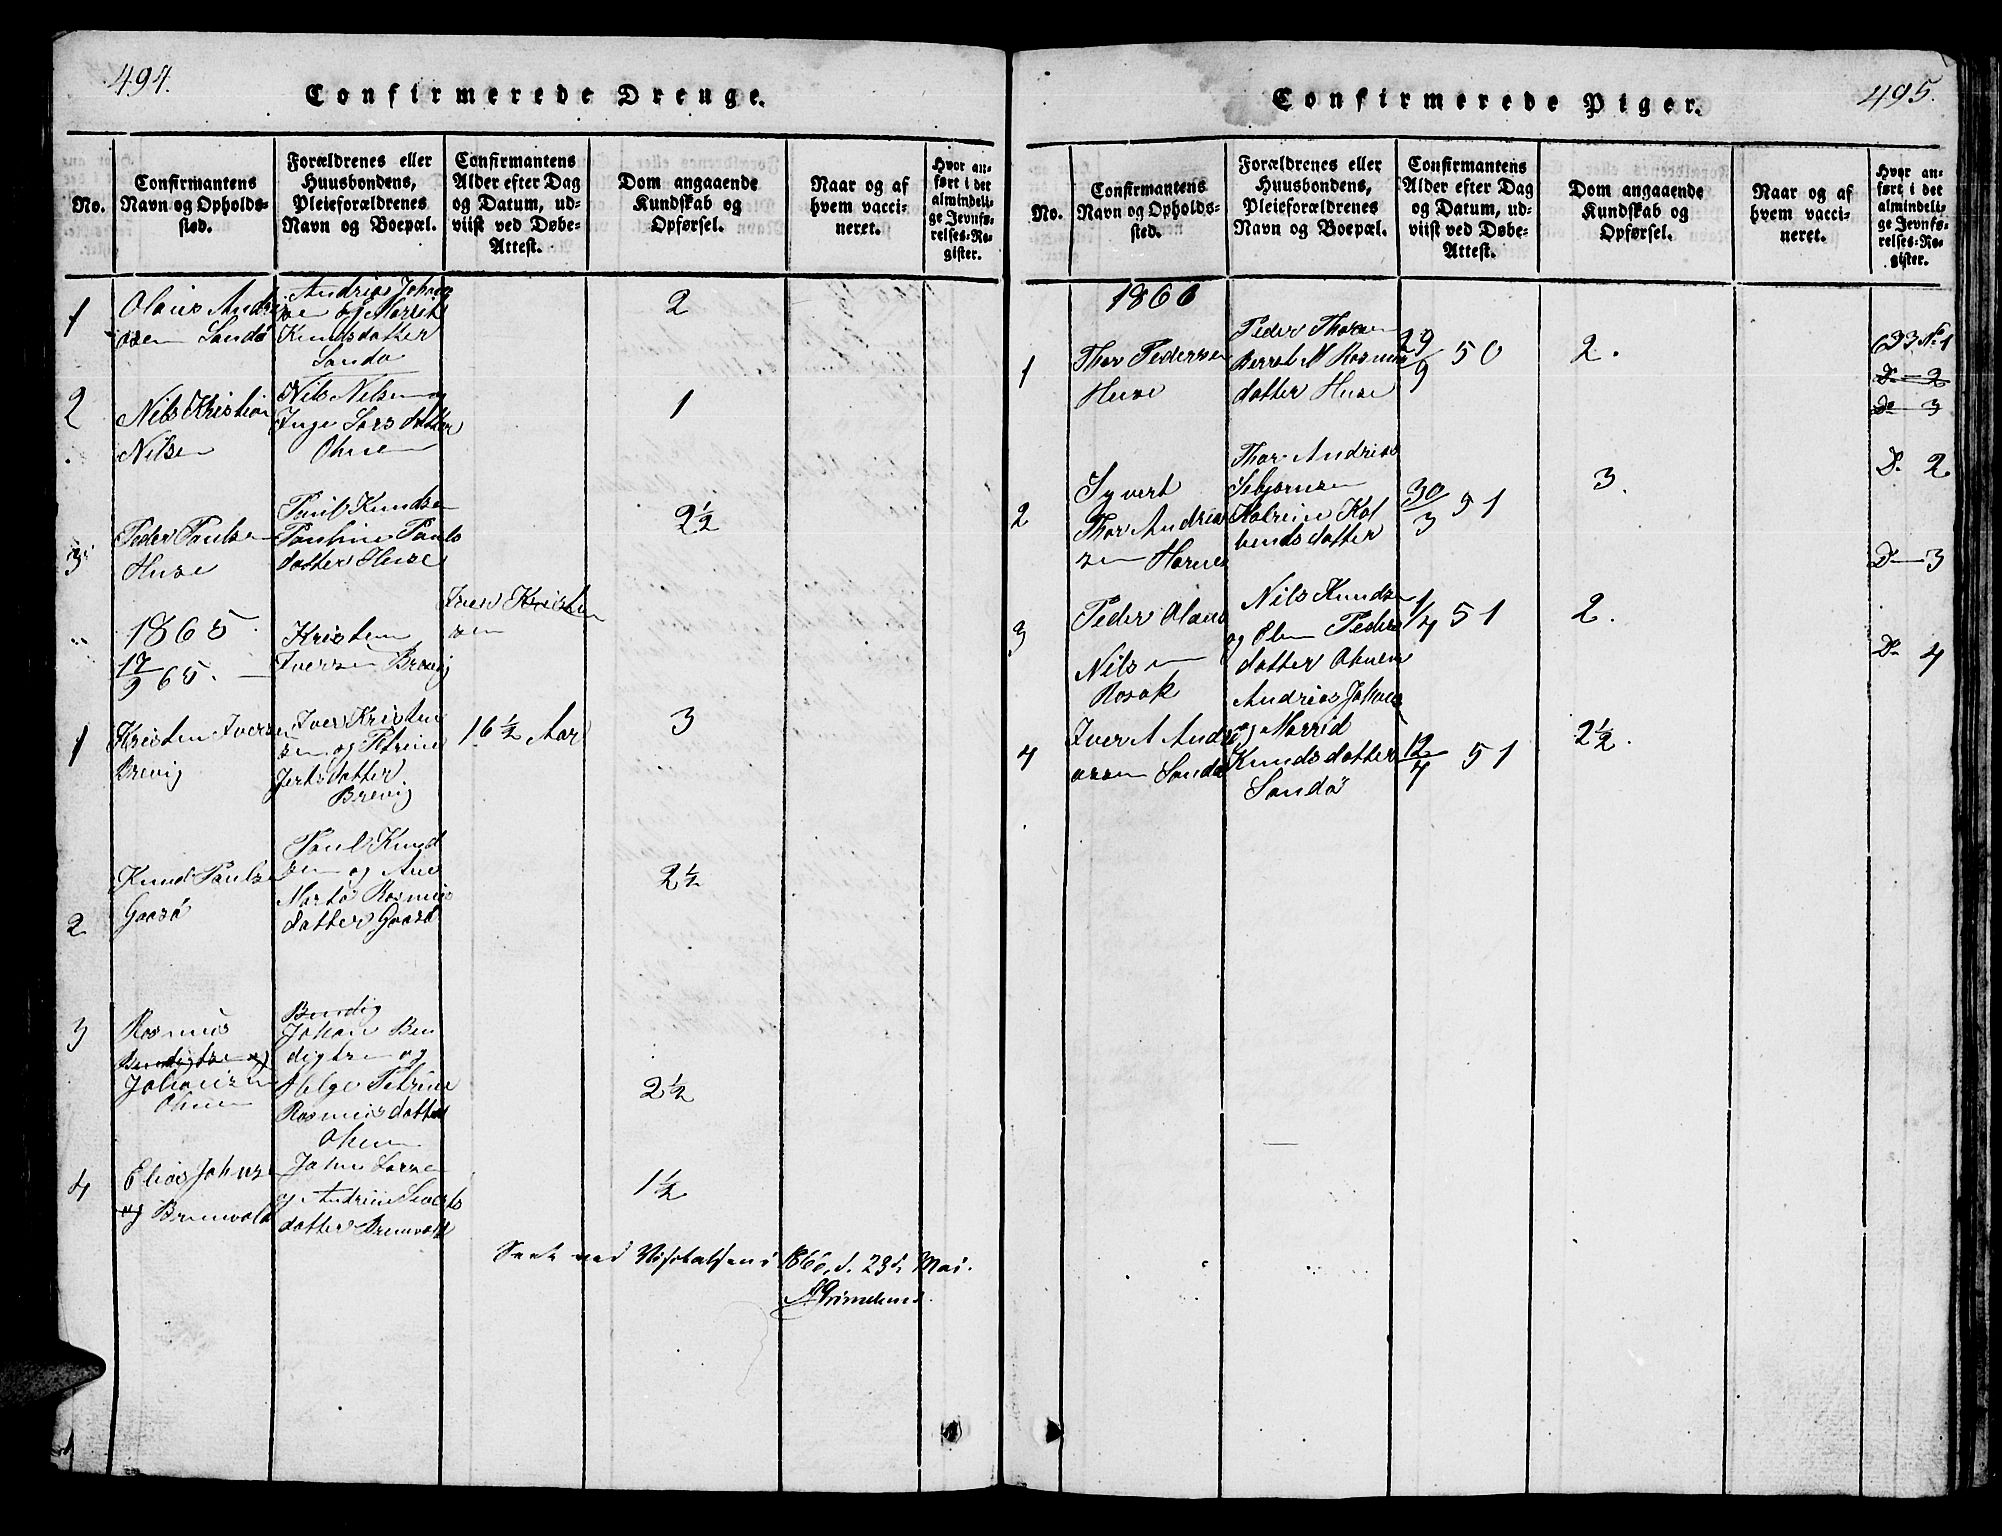 494.
Confirmerede Drenge.
No.
Confirmantens Navn og Opholdssted.
Forældrenes eller Huusbondens, Pleieforældrenes Navn og Boepæl.
Confirmantens Alder efter Dag og Datum, udviist ved Døbe-Attest.
Dom angaaende Kundskab og Opførsel.
Naar og af hvem vaccineret.
Hvor anført i det almindelige Jevnførelses-Register.
1
Olaus Andri
asen Sandø
Andrias Johnsen
Knudsdatter
Sandø
2
2
Nils Kristian
Nilsen
Nils Nilsen og
Inge Larsdatter
Ohnen
1
3
Peder Paulsen
Huse
Paul Knudsen
Pauline Pauls
datter Huse
2½
1865
17/9 65.
Kristen
Iversen Brevig
Iver Kristen
sen
1
Kristen Iversen
Brevig
Iver Kristen
sen og Petrine
Jertsdatter
Brevig
16½ Aar
3
2
Knud Paulsen
Gaasø
Paul Knud
sen og Ane
Marta Rasmus
datter Gaasø
2½
3
Rasmus
Bendigtsen og
Johansen
Ohnen
Bendig
Johan Ben
digtsen og
Helge Petrine
Rasmusdatter
Ohnen
2½
4
Elias Johnsen
og Bremvold
John Larsen
og Andrine Siverts
datter Bremvold
1½
Seet ved Visitatsen i 1866, d. 23d Mai.
495.
Confirmerede Piger.
No.
Confirmantens Navn og Opholdssted.
Forældrenes eller Huusbondens, Pleieforældrenes Navn og Boepæl.
Confirmantens Alder efter Dag og Datum, udviist ved Døbe-Attest.
Dom angaaende Kundskab og Opførsel.
Naar og af hvem vaccineret.
Hvor anført i det almindelige Jevnførelses-Register.
1866
1
Thor Pedersen
Huse
Peder Thorsen
Berret M Rasmus
datter Huse
29/9 50
2.
633 No 1
Do 2
Do 3
2
Syvert
Thor Andrias
sen Harnes
Thor Andrias
Sebjørnsen
Katrine Kol
bendsdatter
30/3 51
3.
Do 2
Do 3
3
Peder Olaus
Nilsen
Rosok
Nils Knudsen
og Elen Peders
datter Ohnen
1/4 51
2.
Do 4
4
Iver A Andri
asen Sandø
Andrias Johnsen
og Marrid
Knudsdatter
Sandø
12/4 51
2½.